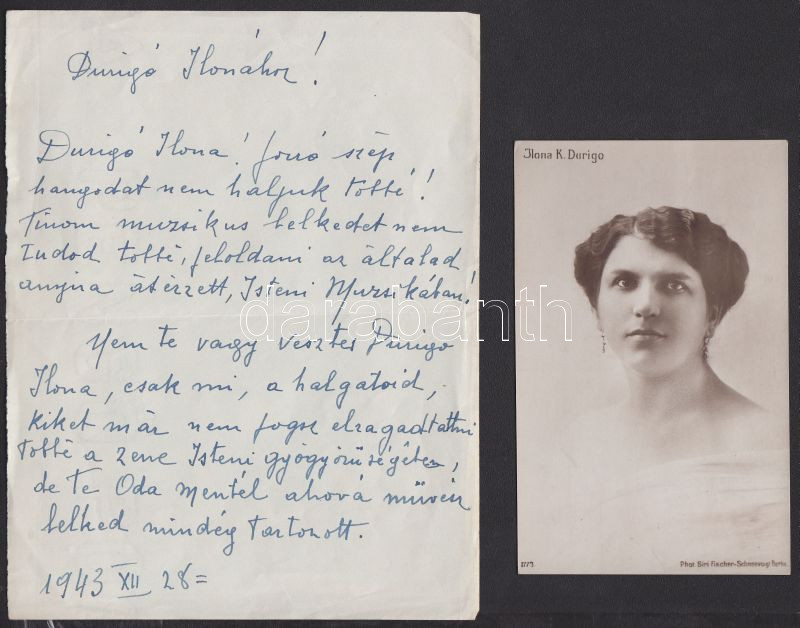 Durigó Ilonához!
Durigó Ilona! forró szép
hangodat nem haljuk többé!
Finom muzsikus lelkedet nem
tudod többé, feloldani az általad
annyira átérzett, Isteni Muzsikában!
Nem te vagy vesztes Durigo
Ilona, csak mi, a halgatoid,
kiket már nem fogsz elragadtattni
többé a zene Isteni gyógyörüségében,
de te Oda mentél ahová müvész
lelked mindég tartozott.
1943 XII 28=
Ilona K. Durigo
darabanth
Phot. Siri Fischer-Schneevoigt Berlin